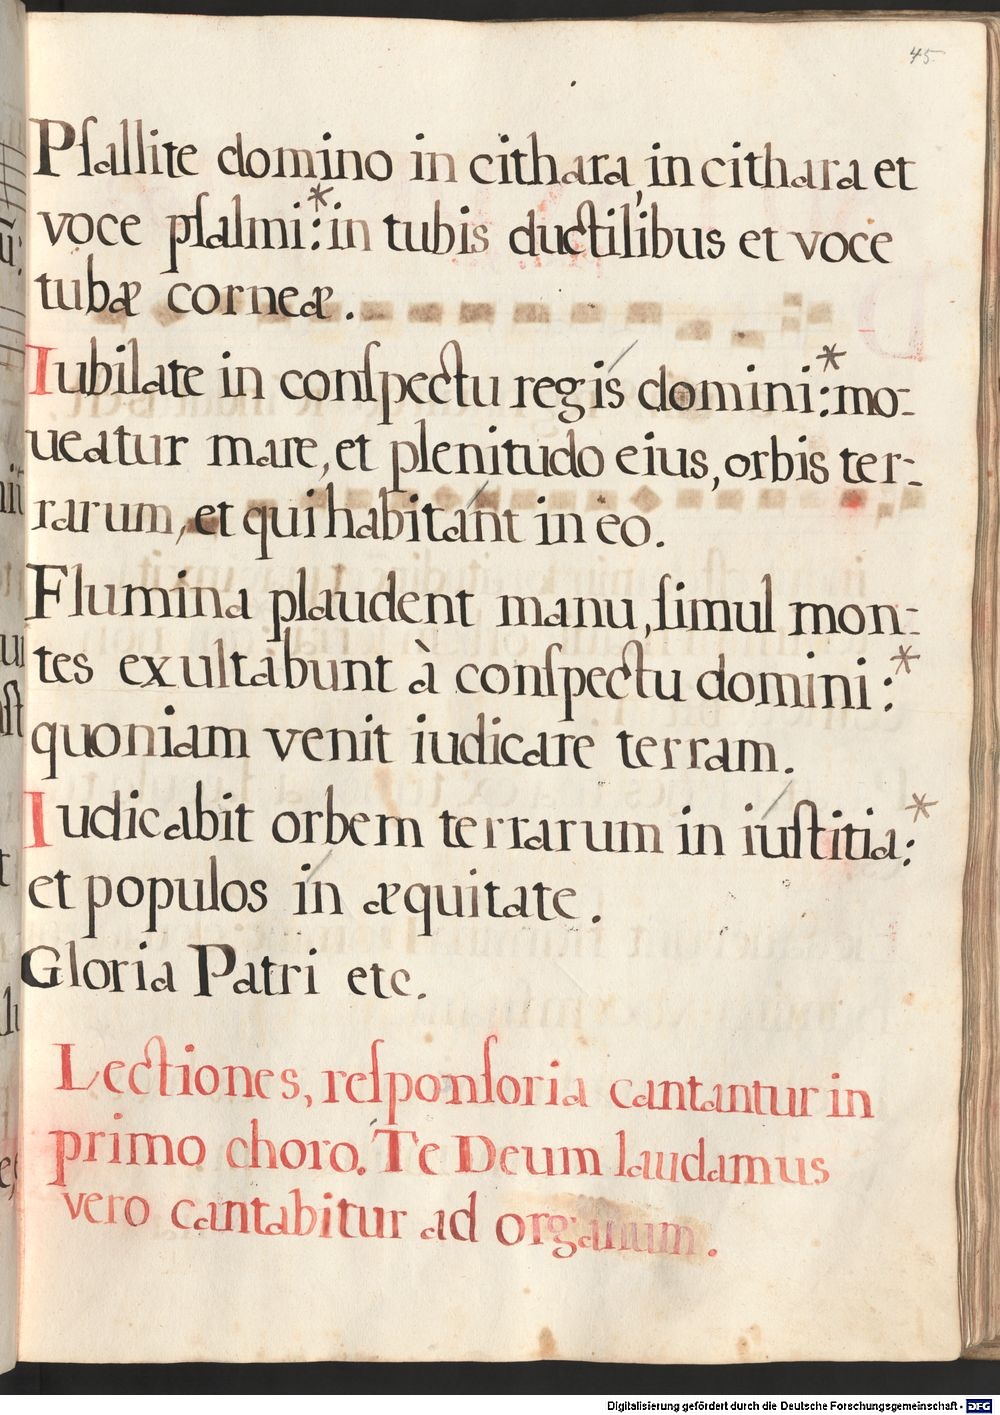 45
Pſallite domino in cithara, in cithara et
voce pſalmi:* in tubis ductilibus et voce
tubæ corneæ.
Iubilate in conſpectu regis domini:* mo-
ueatur mare, et plenitudo eius, orbis ter-
rarum, et qui habitant in eo.
Flumina plaudent manu, ſimul mon-
tes exultabunt à conſpectu domini:*
quoniam venit iudicare terram.
Iudicabit orbem terrarum in iuſtitia:*
et populos in æquitate.
Gloria Patri etc.
Lectiones, reſponſoria cantantur in
primo choro. Te Deum laudamus
vero cantabitur ad organum.
Digitalisierung gefördert durch die Deutsche Forschungsgemeinschaft - DFG